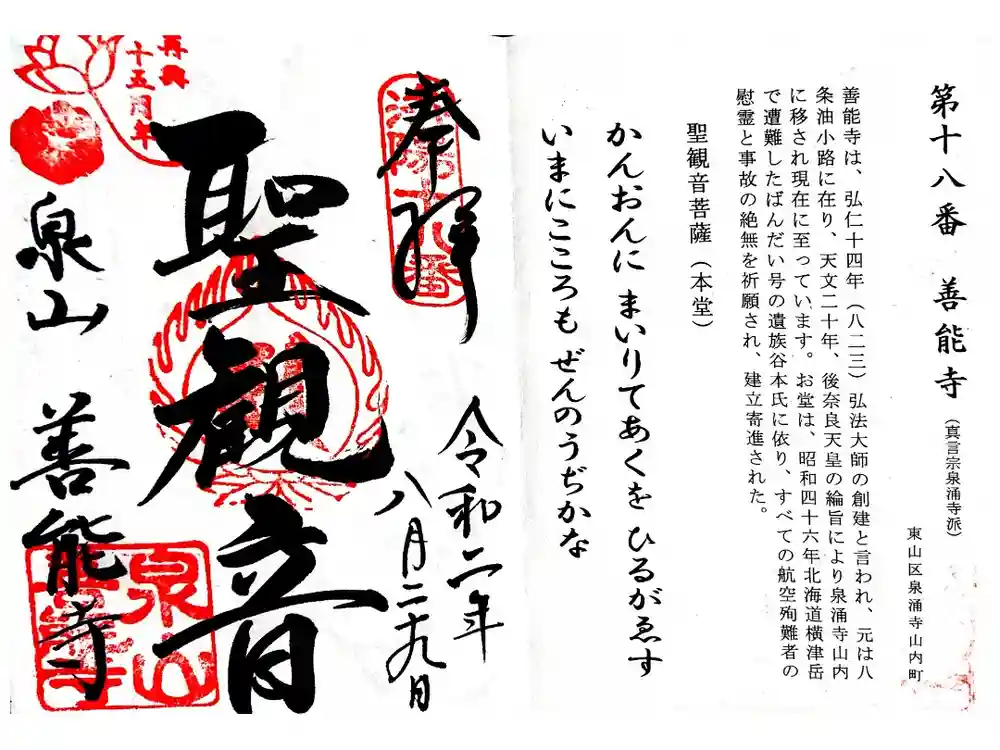 第十八番 善能寺(真言宗泉涌寺派)
東山区泉涌寺山内町
善能寺は、弘仁十四年(八二三)弘法大師の創建と言われ、元は八
条油小路に在り、天文二十年、後奈良天皇の綸旨により泉涌寺山内
に移され現在に至っています。お堂は、昭和四十六年北海道横津岳
で遭難したばんだい号の遺族谷本氏に依り、すべての航空殉難者の
慰霊と事故の絶無を祈願され、建立寄進された。
聖観音菩薩(本堂)
かんおんに まいりてあくを ひるがゑす
いまにこころも ぜんのうぢかな
奉拝
洛陽十八番
令和二年
八月二十九日
聖観音
再興
十五周年
泉山
善能寺
泉山
善能寺